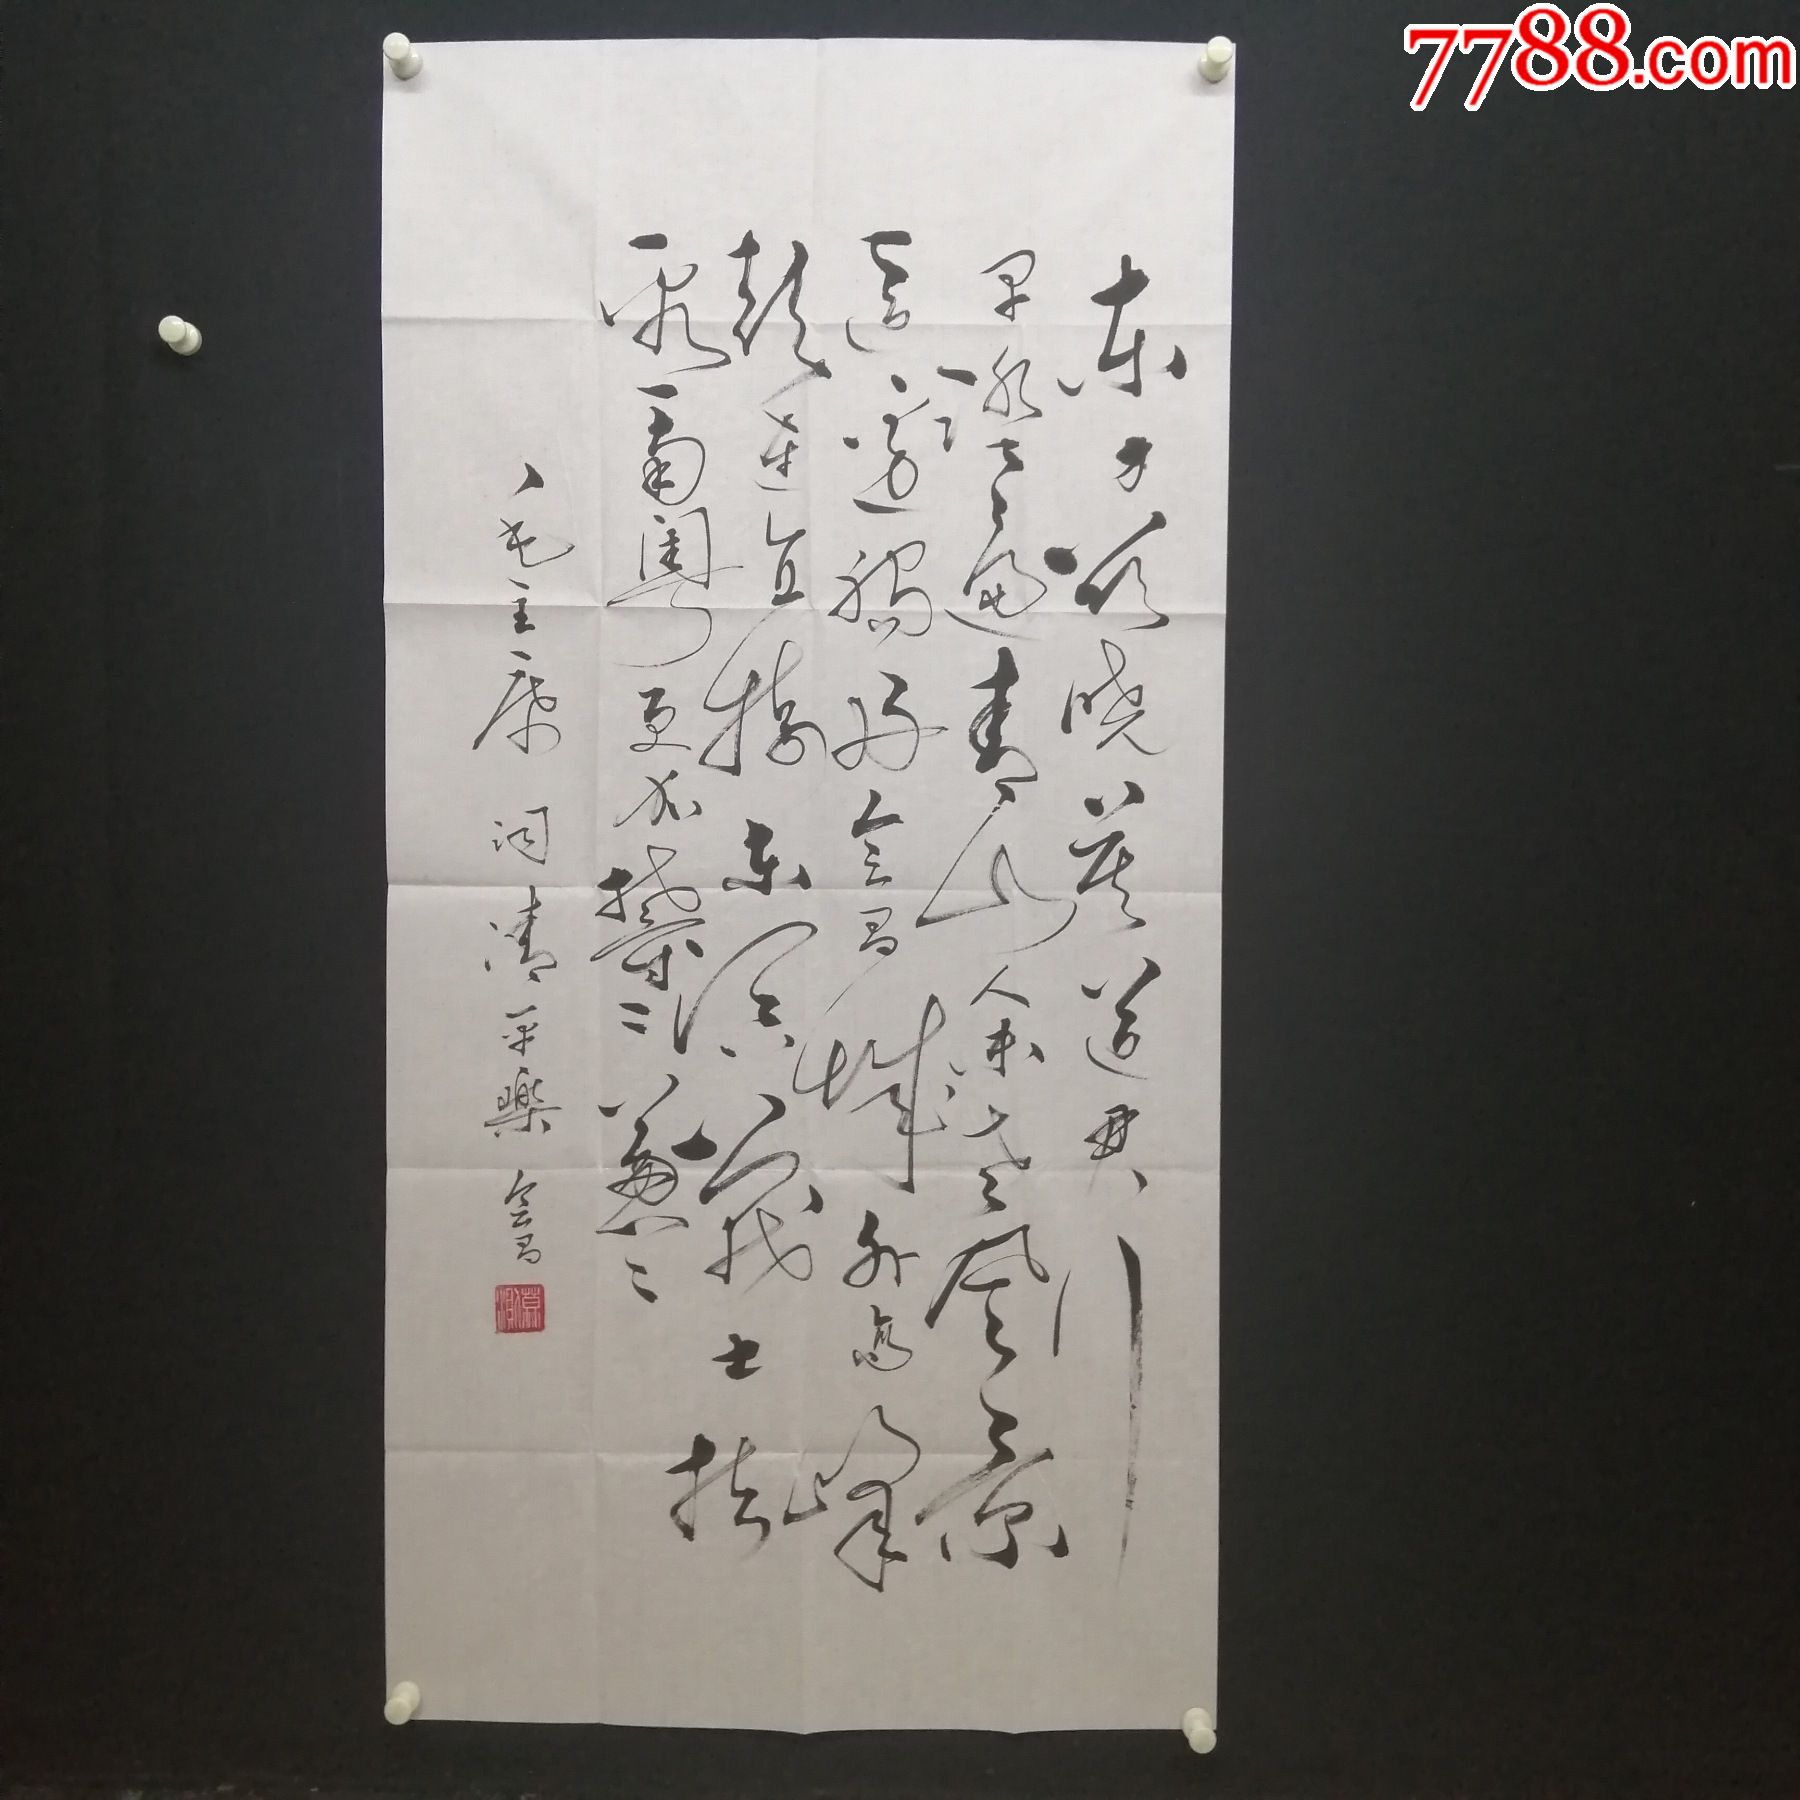 7788.com
东方欲晓莫道君行
早踏遍青山人未老风景
這邊獨好会昌城外高峰
颠连直接东溟战士指
看南粤更加鬱〻葱〻
毛主席词清平樂会昌